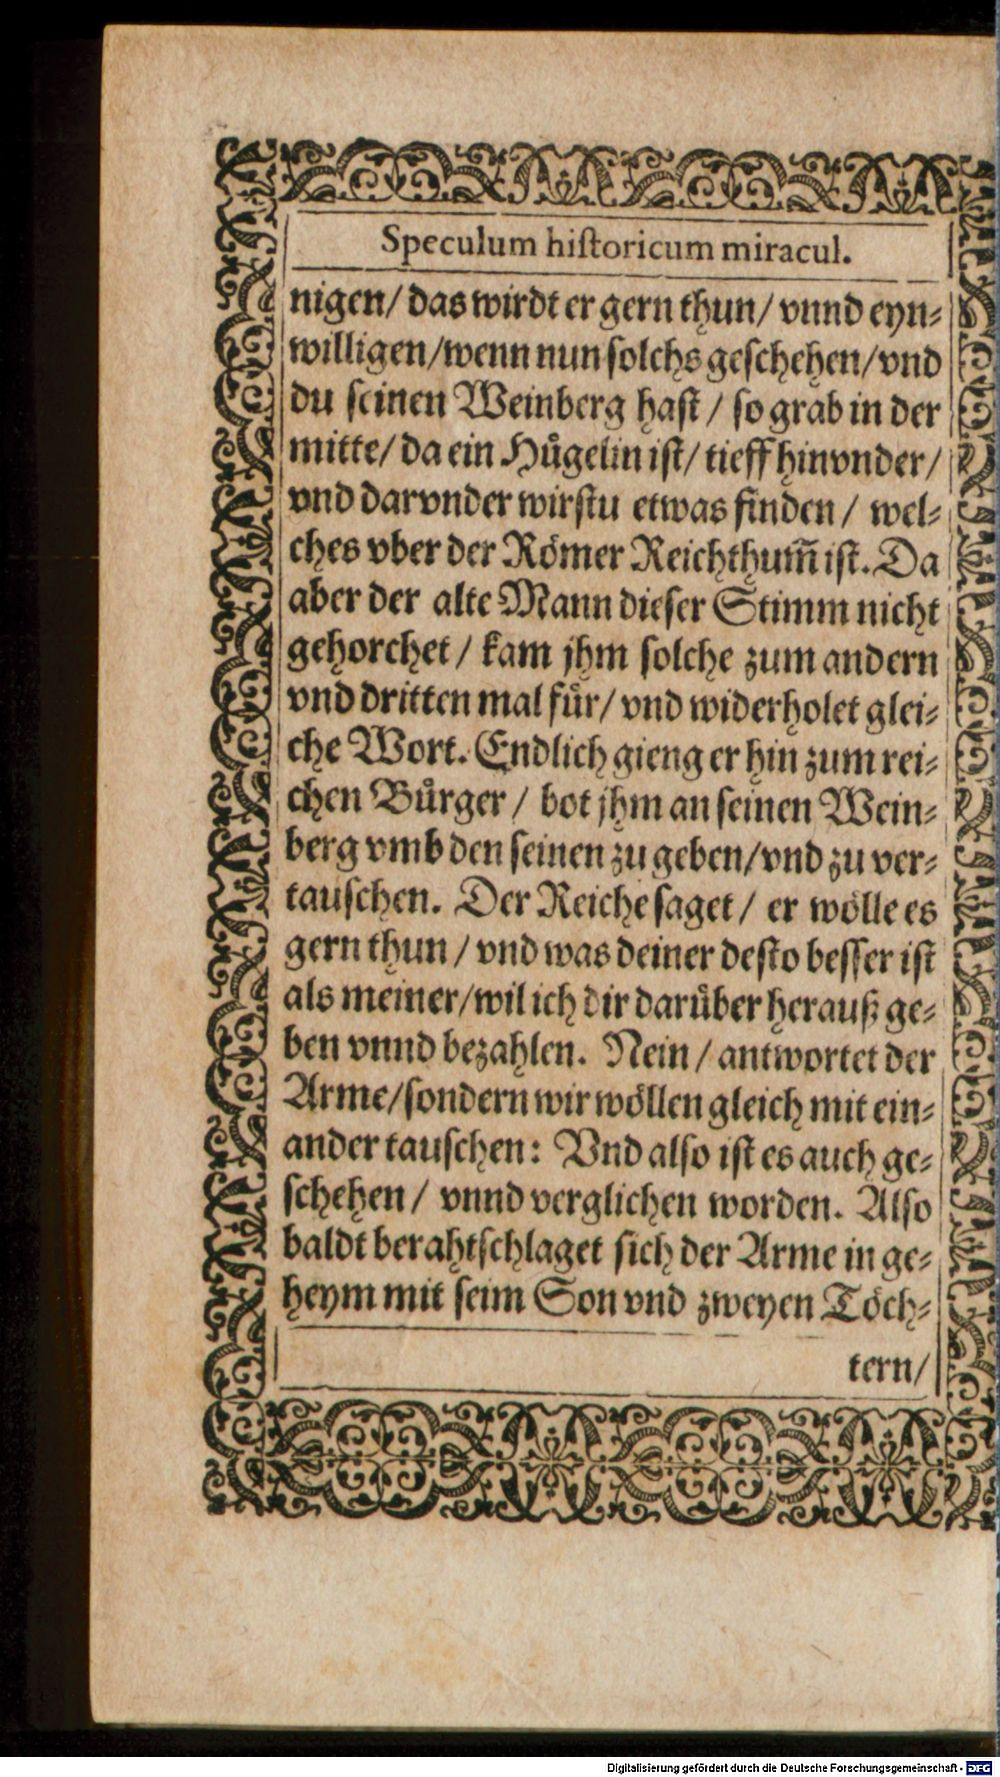 Speculum hiſtoricum miracul.
nigen/ das wirdt er gern thun/ vnnd eyn⸗
willigen/wenn nun ſolchs geſchehen/vnd
du ſeinen Weinberg haſt / ſo grab in der
mitte/ da ein Huͤgelin iſt/ tieff hinvnder/
vnd darvnder wirſtu etwas finden / wel⸗
ches vber der Roͤmer Reichthum̃ iſt. Da
aber der alte Mann dieſer Stimm nicht
gehorchet / kam jhm ſolche zum andern
vnd dritten mal fuͤr/ vnd widerholet glei⸗
che Wort. Endlich gieng er hin zum rei⸗
chen Buͤrger / bot jhm an ſeinen Wein⸗
berg vmb den ſeinen zu geben/vnd zu ver⸗
tauſchen. Der Reiche ſaget / er woͤlle es
gern thun / vnd was deiner deſto beſſer iſt
als meiner/wil ich dir daruͤber herauß ge⸗
ben vnnd bezahlen. Nein / antwortet der
Arme/ſondern wir woͤllen gleich mit ein⸗
ander tauſchen: Vnd alſo iſt es auch ge⸗
ſchehen / vnnd verglichen worden. Alſo
baldt berahtſchlaget ſich der Arme in ge⸗
heym mit ſeim Son vnd zweyen Toͤch⸗
tern/
Digitalisierung gefördert durch die Deutsche Forschungsgemeinschaft - DFG